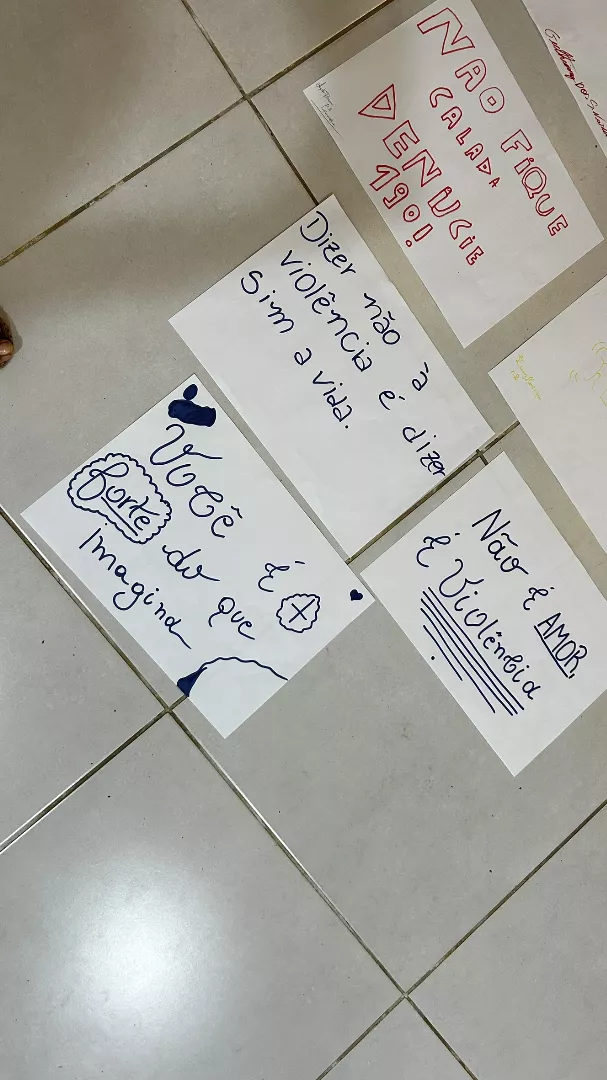 NAO FIQUE
CALADA
DENUCIE
190!
Dizer não à
violência é dizer
sim a vida.
VOCÊ É +
forte do que
imagina
Não é AMOR,
É Violência